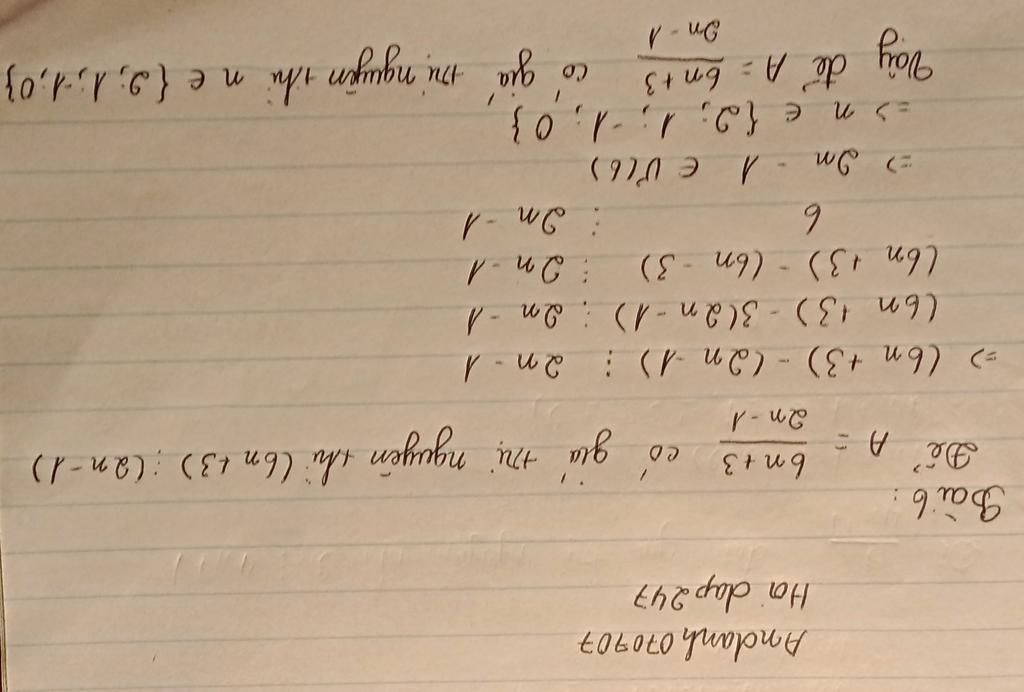 Andanh070707
Hoi dap247
Bài 6:
Để A = \frac{6n+3}{2n-1} có giá trị nguyên thì (6n+3) ⋮ (2n-1)
=> (6n+3) - (2n-1) ⋮ 2n-1
(6n+3) - 3(2n-1) ⋮ 2n-1
(6n+3) - (6n-3) ⋮ 2n-1
6 ⋮ 2n-1
=> 2n - 1 ∈ Ư(6)
=> n ∈ {2; 1; -1; 0}
Vậy để A = \frac{6n+3}{2n-1} có giá trị nguyên thì n ∈ {2; 1; -1; 0}